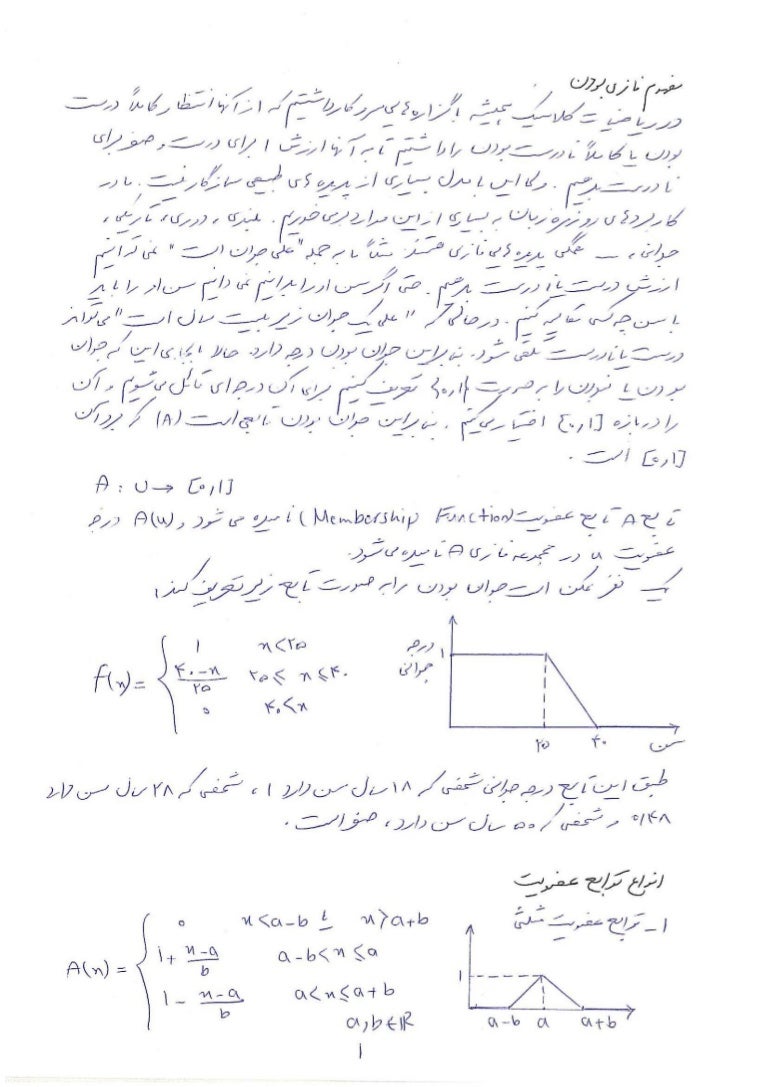 مفهوم فازی بودن
در ریاضیات کلاسیک همیشه با گزاره‌هایی سر و کار داشتیم که از آنها انتظار کاملاً درست
بودن یا کاملاً نادرست بودن را داشتیم تا به آنها ارزش ۱ برای درست و صفر برای
نادرست بدهیم. ولی این با مدل بسیاری از پدیده های طبیعی سازگار نیست. ما در
کاربردهای روزمره زبان به بسیاری از این موارد برمی خوریم. بلندی، دوری، تاریکی،
جوانی، ... همگی پدیده هایی فازی هستند. مثلاً ما به جمله "علی جوان است" نمی توانیم
ارزش درست یا نادرست بدهیم. حتی اگر سن او را بدانیم نمی دانیم سن او را باید
با سن چه کسی مقایسه کنیم. در حالی که "علی یک جوان زیر بیست سال است" می تواند
درست یا نادرست تلقی شود. بنابراین جوان بودن درجه دارد. حالا بجای این که جوان
بودن یا نبودن را به صورت {۰,۱} تعریف کنیم برای آن درجه ای قائل می شویم و آن
را در بازه [۰,۱] اختیار می کنیم. بنابراین جوان بودن تابعی است (A) که برد آن
[۰,۱] است.
A : U → [۰,۱]
تابع A تابع عضویت (Membership Function) نامیده می شود و A(u) درجه
عضویت u در مجموعه فازی A نامیده می شود.
یک نفر ممکن است جوان بودن را به صورت تابع زیر تعریف کند:
f(x) = { 1 x<۲۵
۴۰-x / ۲۵ ۲۵ ≤ x ≤ ۴۰
۰ ۴۰<x
درجه جوانی ۱
۲۵ ۴۰ سن
طبق این تابع درجه جوانی شخصی که ۱۸ سال سن دارد ۱، شخصی که ۲۸ سال سن دارد
۰/۴۸ و شخصی که ۵۰ سال سن دارد، صفر است.
انواع توابع عضویت
۱- توابع عضویت مثلثی
A(x) = { ۰ x<a-b یا x>a+b
1 + x-a / b a-b<x≤a
1 - x-a / b a<x≤a+b
a,b∈ℝ
1
a-b a a+b
۱